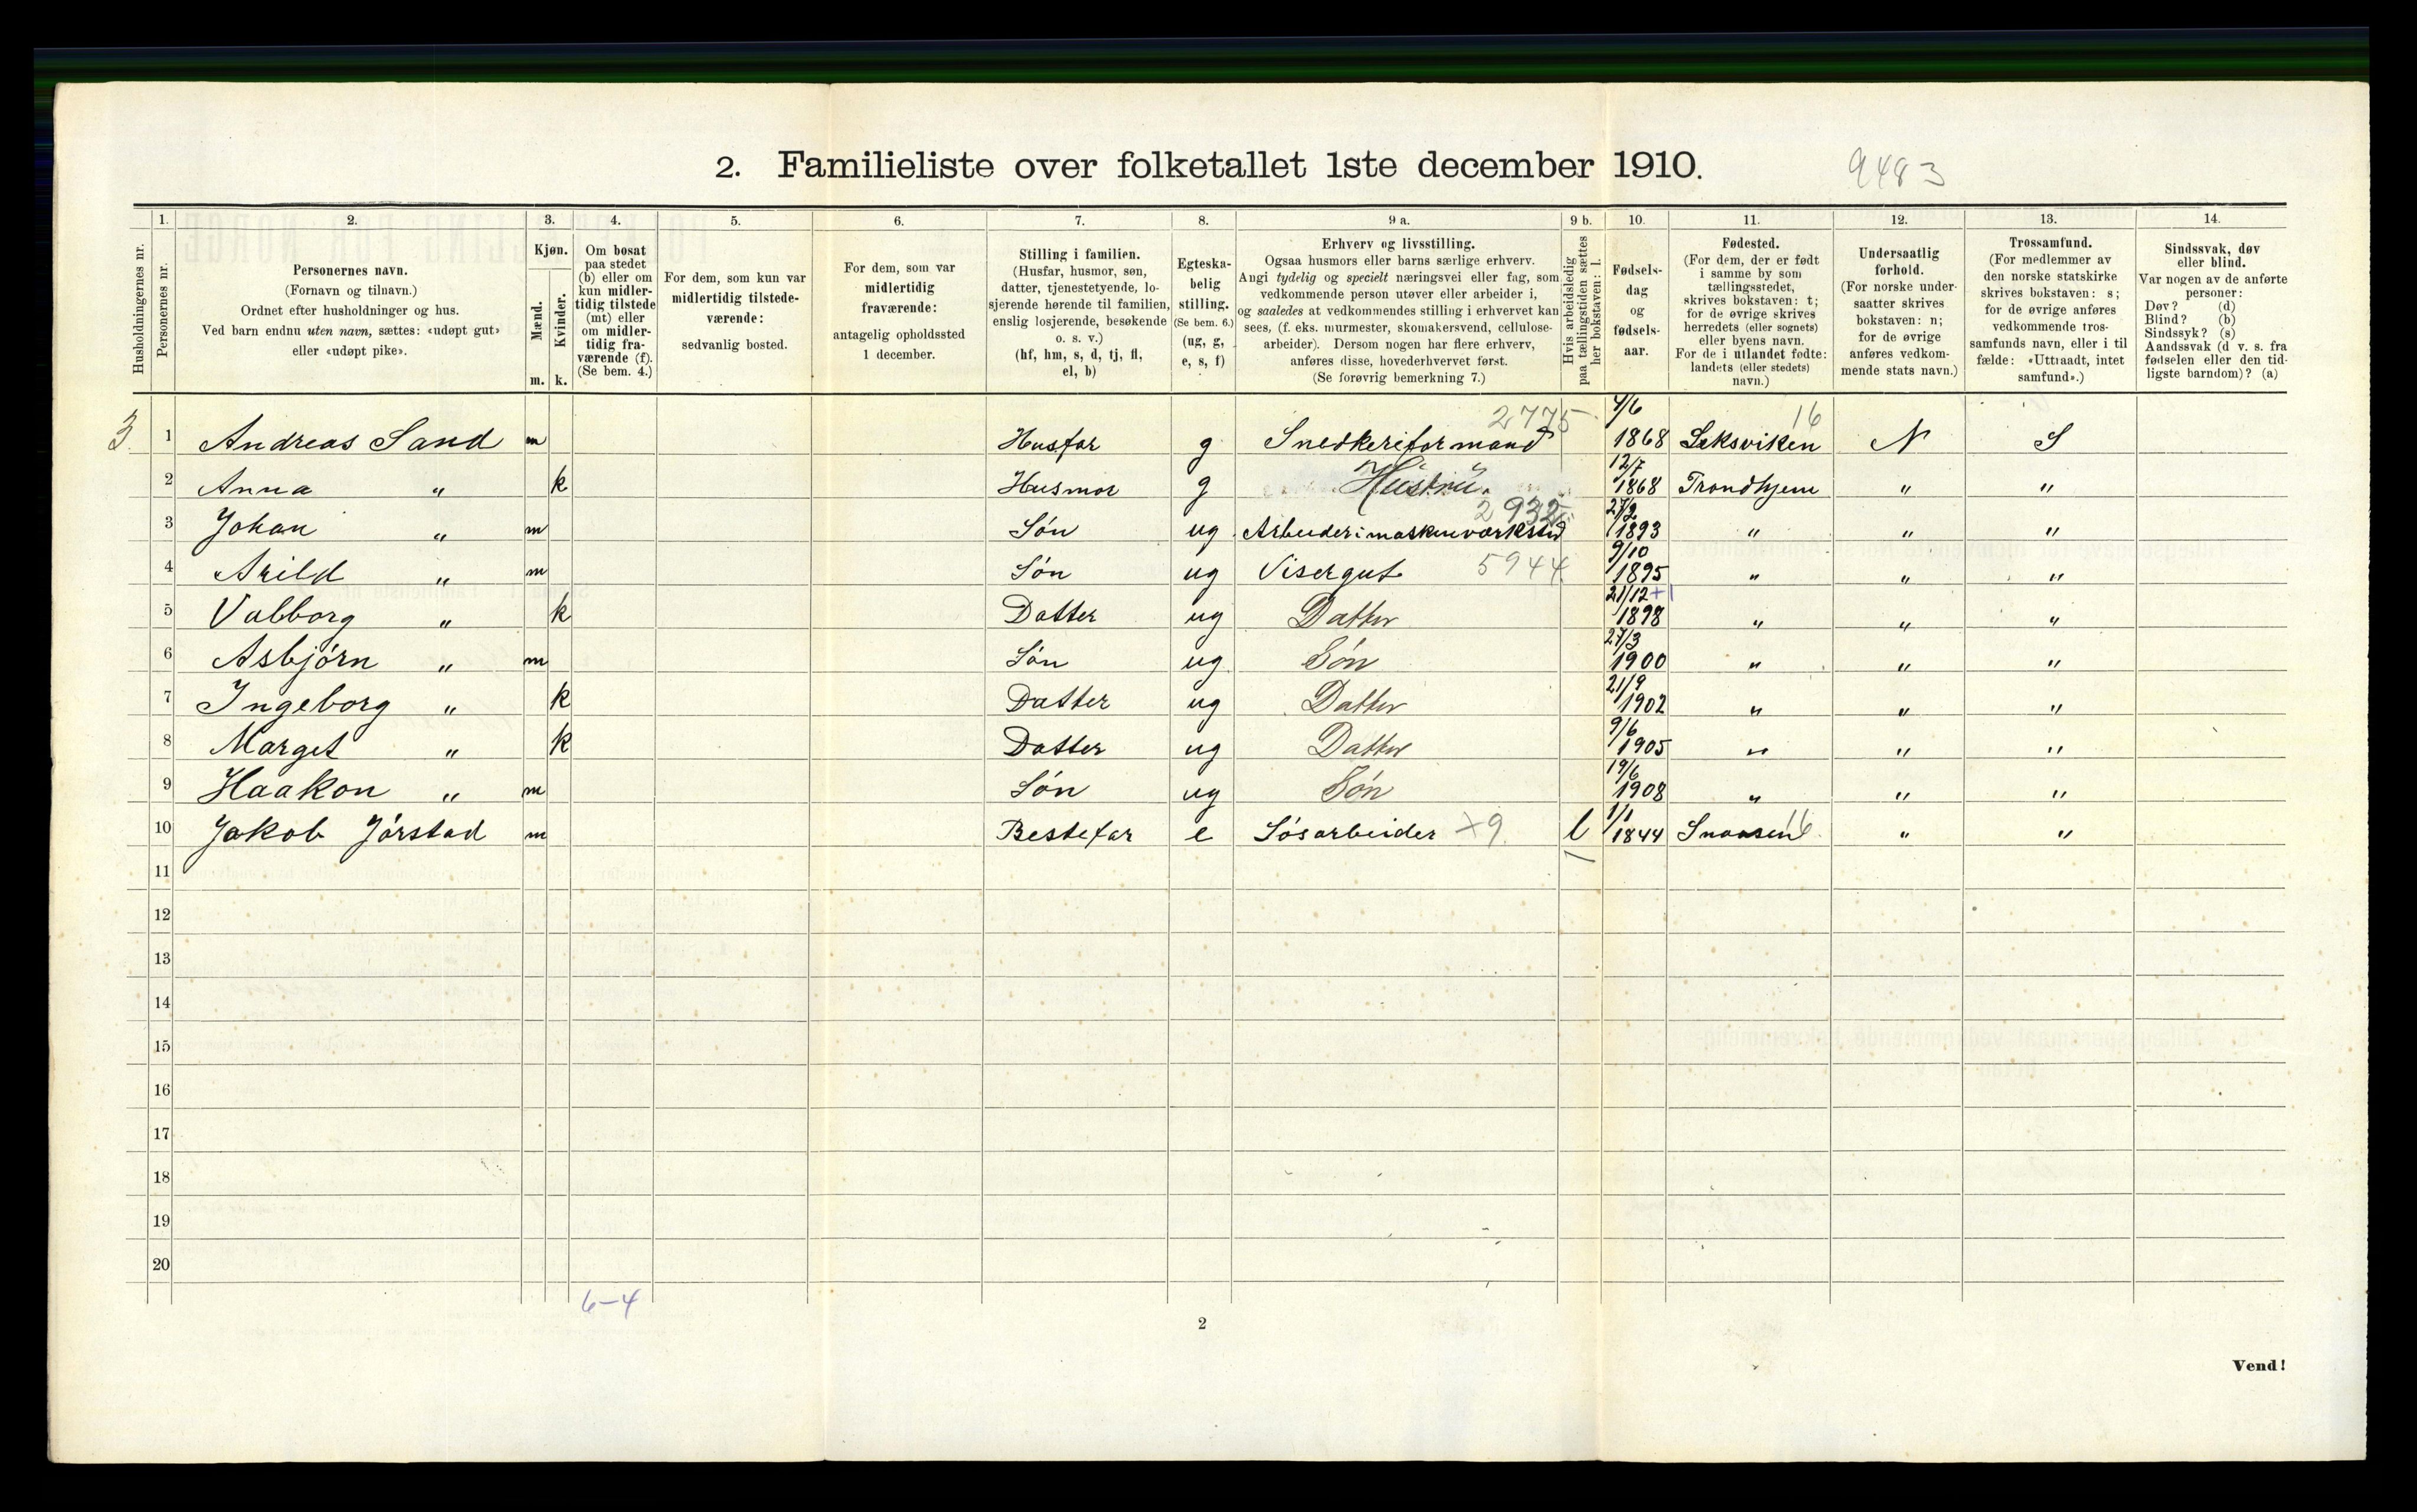 2. Familieliste over folketallet 1ste december 1910.
9483
Husholdningernes nr.
1.
Personernes nr.
2.
Personernes navn.
(Fornavn og tilnavn.)
Ordnet efter husholdninger og hus.
Ved barn endnu uten navn, sættes: «udøpt gut»
eller «udøpt pike».
3.
Kjøn.
Mænd.
m.
Kvinder.
k.
4.
Om bosat
paa stedet
(b) eller om
kun midler-
tidig tilstede
(mt) eller
om midler-
tidig fra-
værende (f).
(Se bem. 4.)
5.
For dem, som kun var
midlertidig tilstede-
værende:
sedvanlig bosted.
6.
For dem, som var
midlertidig
fraværende:
antagelig opholdssted
1 december.
7.
Stilling i familien.
(Husfar, husmor, søn,
datter, tjenestetyende, lo-
sjerende hørende til familien,
enslig losjerende, besøkende
o. s. v.)
(hf, hm, s, d, tj, fl,
el, b)
8.
Egteska-
belig
stilling.
(Se bem. 6.)
(ug, g,
e, s, f)
9 a.
Erhverv og livsstilling.
Ogsaa husmors eller barns særlige erhverv.
Angi tydelig og specielt næringsvei eller fag, som
vedkommende person utøver eller arbeider i,
og saaledes at vedkommendes stilling i erhvervet kan
sees, (f. eks. murmester, skomakersvend, cellulose-
arbeider). Dersom nogen har flere erhverv,
anføres disse, hovederhvervet først.
(Se forøvrig bemerkning 7.)
9 b.
Hvis arbeidsledig
paa tællingstiden sættes
her bokstaven: l.
10.
Fødsels-
dag
og
fødsels-
aar.
11.
Fødested.
(For dem, der er født
i samme by som
tællingsstedet,
skrives bokstaven: t;
for de øvrige skrives
herredets (eller sognets)
eller byens navn.
For de i utlandet fødte:
landets (eller stedets)
navn.)
12.
Undersaatlig
forhold.
(For norske under-
saatter skrives
bokstaven: n;
for de øvrige
anføres vedkom-
mende stats navn.)
13.
Trossamfund.
(For medlemmer av
den norske statskirke
skrives bokstaven: s;
for de øvrige anføres
vedkommende tros-
samfunds navn, eller i til
fælde: «Uttraadt, intet
samfund».)
14.
Sindssvak, døv
eller blind.
Var nogen av de anførte
personer:
Døv? (d)
Blind? (b)
Sindssyk? (s)
Aandssvak (d v. s. fra
fødselen eller den tid-
ligste barndom)? (a)
2775 4/6 16
3 1 Andreas Sand m Husfar g Snedkeriformand 1868 Leksviken N S
12/7
2 Anna " k Husmor g Hustru. 1868 Trondhjem " "
2932 27/2
3 Johan " m Søn ug Arbeider i maskinværksted 1893 " " "
9/10
4 Arild " m Søn ug Visergut 5944 1895 " " "
21/12 +1
5 Valborg " k Datter ug Datter 1898 " " "
27/3
6 Asbjørn " m Søn ug Søn 1900 " " "
21/9
7 Ingeborg " k Datter ug Datter 1902 " " "
9/6
8 Marget " k Datter ug Datter 1905 " " "
19/6
9 Haakon " m Søn ug Søn 1908 " " "
1/1
10 Jakob Jørstad m Bestefar e Løsarbeider x9 l 1844 Snaasen 16 " "
11
12
13
14
15
16
17
18
19
20
6-4
2
Vend!